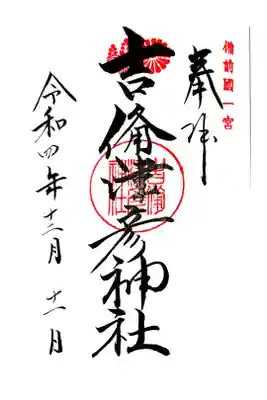 備前國一宮
奉拝
吉備津彦神社
令和四年十二月十一日